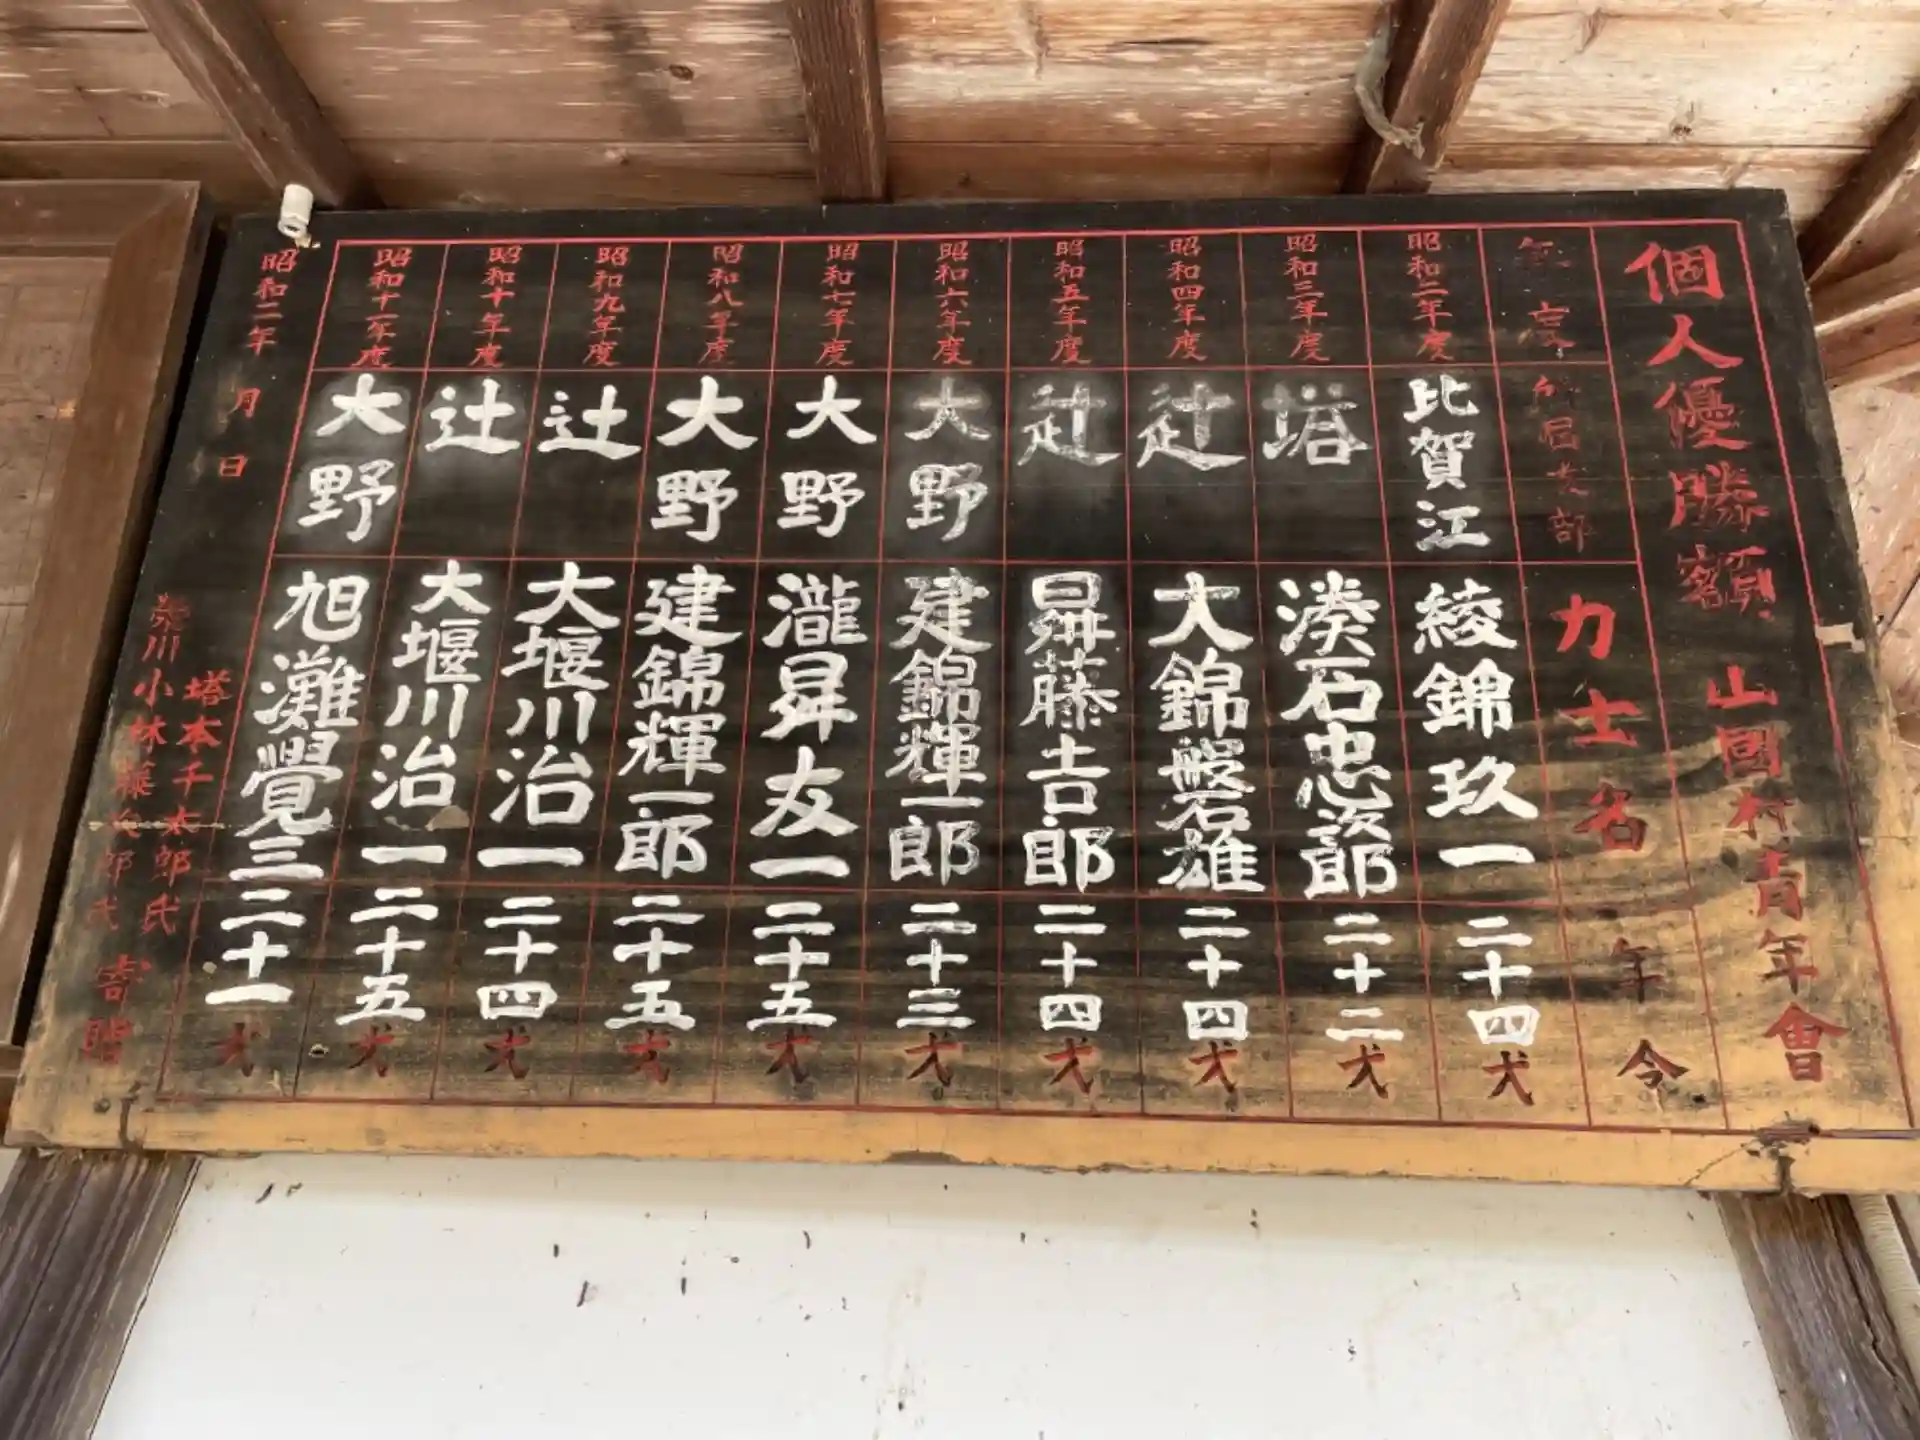 個人優勝額 山國村青年會
年度 所屬支部 力士名 年令
昭和二年度 比賀江 綾錦玖一 二十四才
昭和三年度 塔 湊石忠次郎 二十二才
昭和四年度 辻 大錦盤岩雄 二十四才
昭和五年度 辻 昇藤吉郎 二十四才
昭和六年度 大野 建錦輝一郎 二十三才
昭和七年度 大野 瀧昇友一 二十五才
昭和八年度 大野 建錦輝一郎 二十五才
昭和九年度 辻 大堰川治一 二十四才
昭和十年度 辻 大堰川治一 二十五才
昭和十一年度 大野 旭灘覺三 二十一才
昭和二年 月 日
塔本千太郎氏
小林藤 郎氏
寄贈